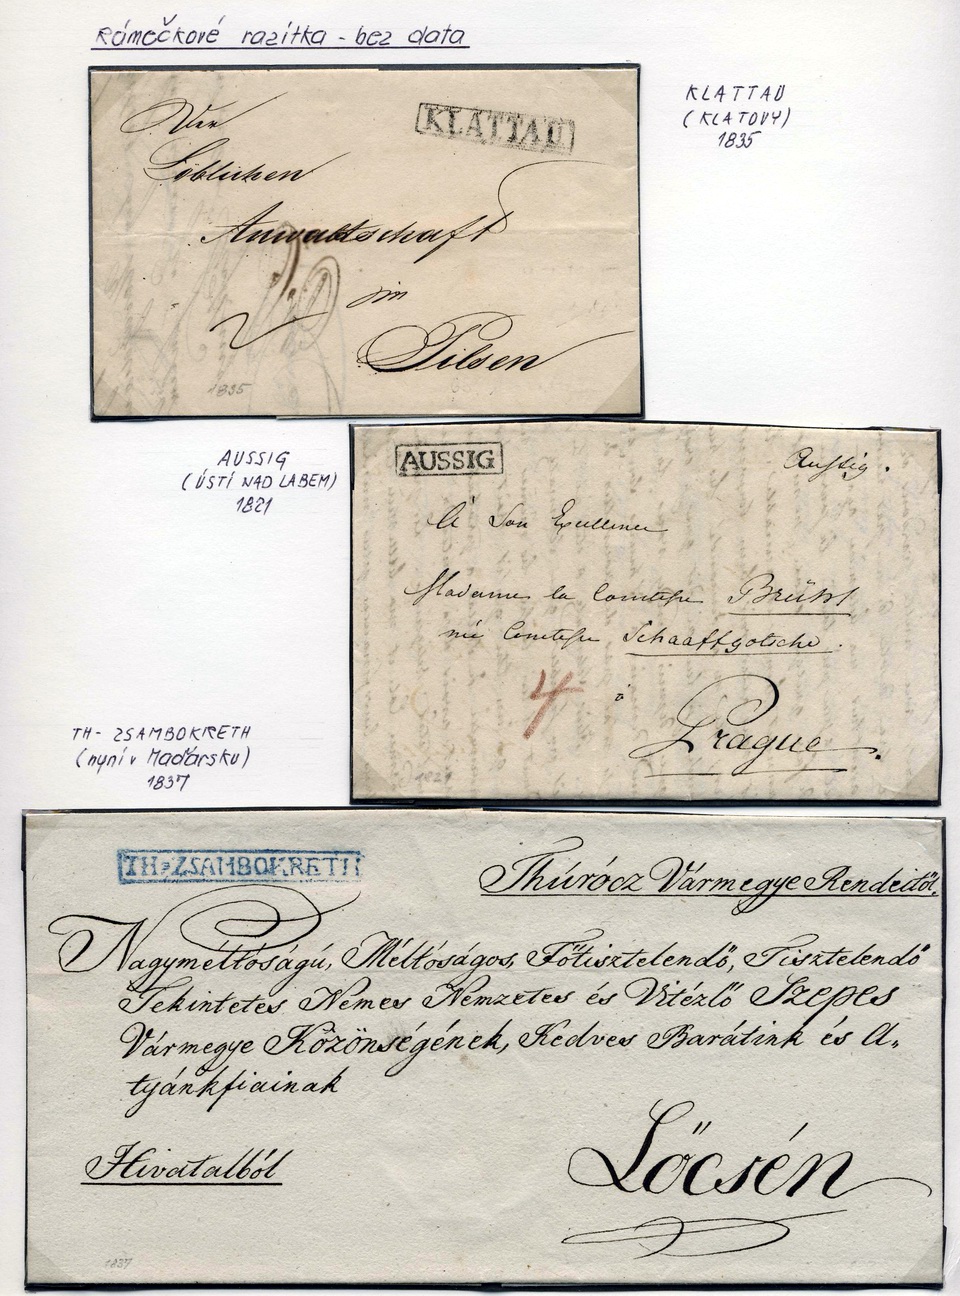 Rámečkové razítka - bez data
KLATTAU
(KLATOVY)
1835
KLATTAU
Löblichen
Anwaltschaft
in
Pilsen
1835
AUSSIG
(ÚSTÍ NAD LABEM)
1821
AUSSIG
Aussig.
A Son Excellence
Madame la Comtesse Brühl
née Comtesse Schaaffgotsche.
4
à
Prague.
1821
TH- ZSAMBOKRETH
(nyní v Maďarsku)
1837
TH=ZSAMBOKRETH
Thúrócz Vármegye Rendeitől.
Nagyméltóságú, Méltóságos, Főtisztelendő, Tisztelendő
Tekintetes Nemes Nemzetes és Vitézlő Szepes
Vármegye Közönségének, Kedves Barátink és A-
tyánkfiainak
Hivatalból
Lőcsén
1837